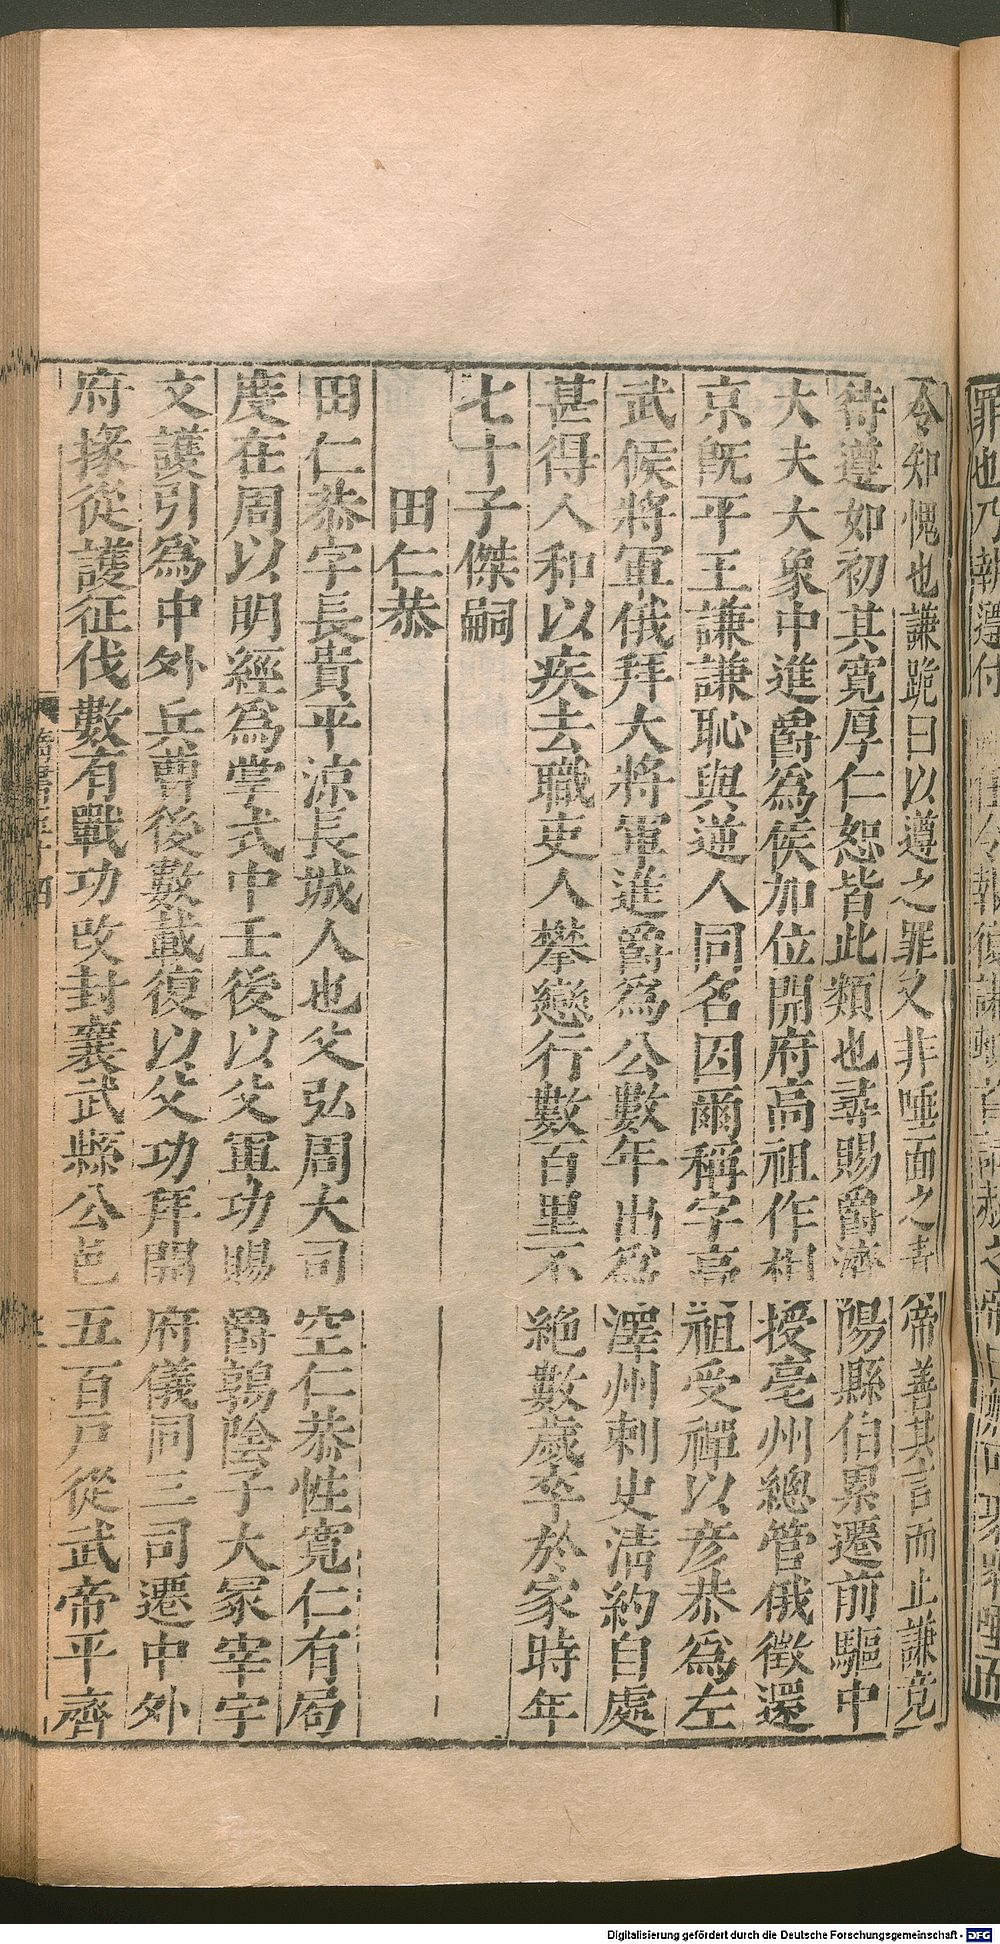 令知愧也謙跪曰以遵之罪又非唾面之責帝善其言而止謙竟
待遵如初其寛厚仁恕皆此類也尋賜爵濟陽縣伯累遷前驅中
大夫大象中進爵為侯加位開府高祖作相授亳州總管俄徵還
京旣平王謙謙恥與逆人同名因爾稱字高祖受禪以彦恭為左
武侯將軍俄拜大將軍進爵為公數年出為澤州刺史清約自處
甚得人和以疾去職吏人攀戀行數百里不絶數歲卒於家時年
七十子傑嗣
田仁恭
田仁恭字長貴平涼長城人也父弘周大司空仁恭性寛仁有局
度在周以明經為掌式中士後以父軍功賜爵鶉陰子大冢宰宇
文護引為中外兵曹後數載復以父功拜開府儀同三司遷中外
府掾從護征伐數有戰功改封襄武縣公邑五百戸從武帝平齊
罪也乃執遵付
Digitalisierung gefördert durch die Deutsche Forschungsgemeinschaft - DFG